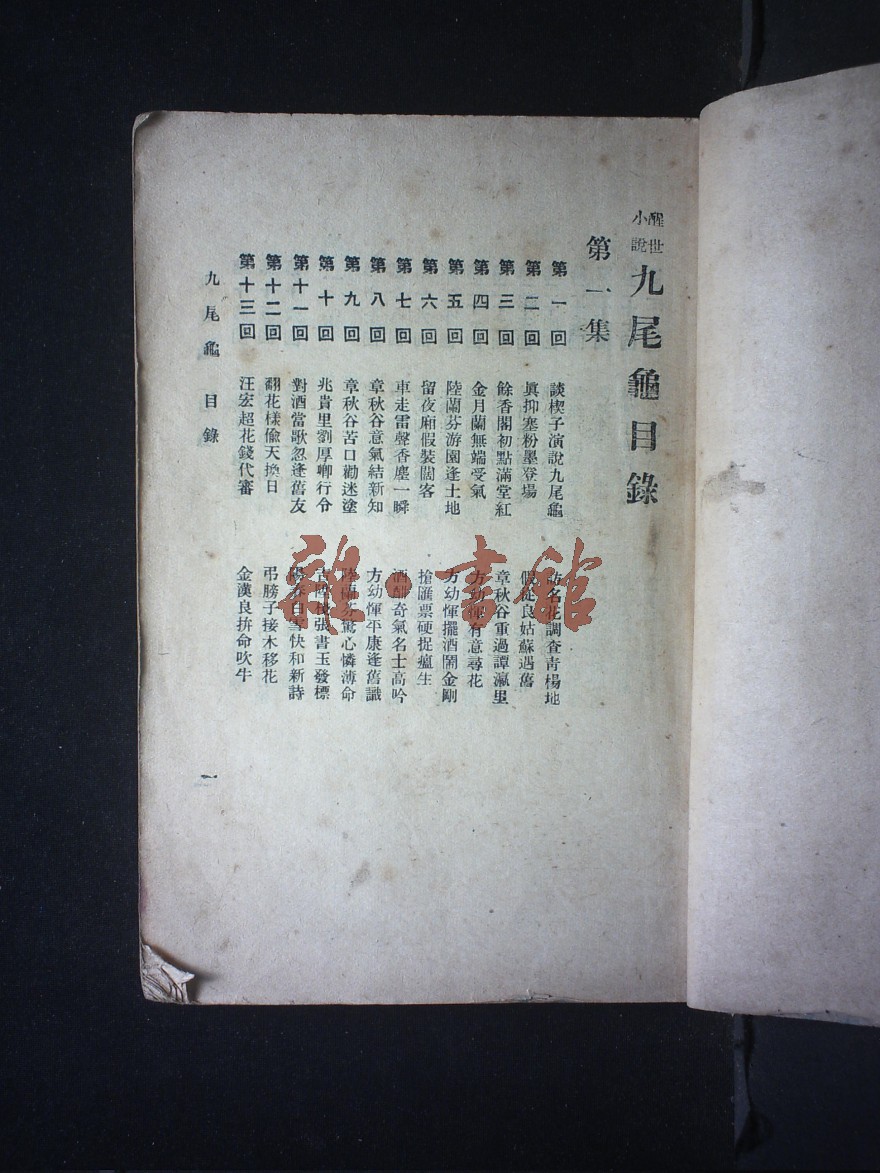 醒世小說
九尾龜目錄
第一集
第一回 談楔子演說九尾龜 訪名花調查青楊地
第二回 眞抑塞粉墨登場 假從良姑蘇遇舊
第三回 餘香閣初點滿堂紅 章秋谷重過譚瀛里
第四回 金月蘭無端受氣 方幼惲有意尋花
第五回 陸蘭芬游園逢土地 方幼惲擺酒鬧金剛
第六回 留夜廂假裝闊客 搶匯票硬捉瘟生
第七回 車走雷聲香塵一瞬 酒酣奇氣名士高吟
第八回 章秋谷意氣結新知 方幼惲平康逢舊識
第九回 章秋谷苦口勸迷塗 陸蘭芬驚心憐薄命
第十回 兆貴里劉厚卿行令 張書玉發標
第十一回 對酒當歌忽逢舊友 陽春白雪快和新詩
第十二回 翻花樣偷天換日 弔膀子接木移花
第十三回 汪宏超花錢代審 金漢良拚命吹牛
九尾龜 目錄
一
雜·書館